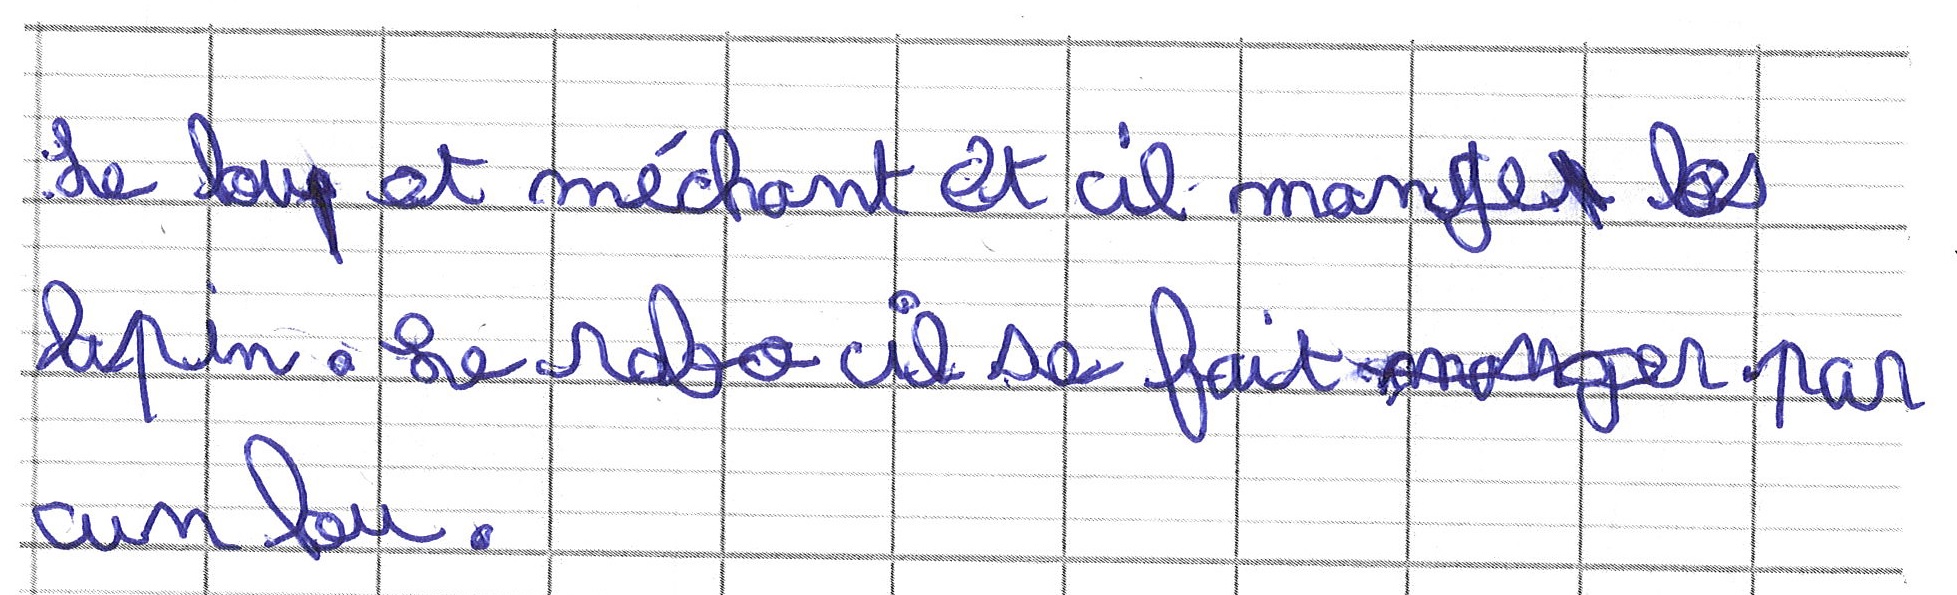 Le loup et méchant et il manger les
lapin. Le robo il se fait manger par
un lou.